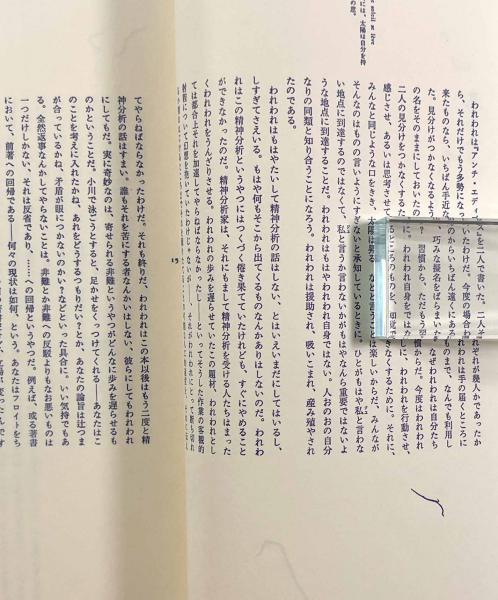 には、太陽は自分を持
の意。
われわれは『アンチ・エディプス』を二人で書いた。二人それぞれが幾人かであったか
ら、それだけでもう多勢になっていたわけだ。今度の場合われわれは手の届くところに
来たものなら、いちばん手近なものからいちばん遠くにあるものまで、なんでも利用し
た。見分けがつかなくなるよう、巧みな擬名をばらまいた。なぜわれわれは自分たち
の名をそのままにしておいたのか? 習慣から、ただもう習慣からだ。今度はわれわれ
二人の見分けをつかなくするため
感じさせ、あるいは思考させているところのものを、知覚できなくするために。それに、
みんなと同じような口をきき、太陽は昇る、などと言うことは楽しいからだ。みんなが
そんなのはものの言いようにすぎないと承知しているときに。ひとがもはや私と言わな
い地点に到達するのではなくて、私と言うか言わないかがもはやなんら重要ではないよ
うな地点に到達することだ。われわれはもはやわれわれ自身ではない。人おのおの自分
なりの同類と知り合うことになろう。われわれは援助され、吸いこまれ、産み殖やされ
たのである。
われわれはもはやたいして精神分析の話はしない、とはいえいまだにしてはいるし、
しすぎてさえいる。もはや何もそこから出てくるものなんかありはしないのだ。われわ
れはこの精神分析というやつにはつくづく倦き果てていたけれども、すぐにやめること
ができなかったのだ。精神分析家は、それにもまして精神分析を受ける人たちはまった
くわれわれをうんざりさせる。われわれの歩みを遅らせていたこの題材、われわれとし
ては都合上それを加速してやらねばならなかったし――といってそうした作業の客観的
射程について幻想を抱いていたわけじゃないが――、それがわれわれにとって断ち切れ
15
てやらねばならなかったわけだ。それも終りだ。われわれはこの本以後はもう二度と精
神分析の話はすまい。誰もそれを苦にする者なんかいはしない。彼らにしてもわれわれ
にしてもだ。実に奇妙なのは、寄せられる非難というやつがどんなに歩みを遅らせるも
のかということだ。小川で泳ごうとすると、足かせをくっつけてくれる――あなたはこ
のことを考えに入れたかね、あれをどうするつもりだい?とか、あなたの論旨は辻つま
が合っているかね、矛盾が眼につかないのかい?などといった具合に。いい気持でもあ
る。全然返事なんかしてやらないことは。非難とか非難への反駁よりもなお悪いものは
一つだけしかない、それは反省であり、……への回帰というやつだ。例えば、或る著書
において、前著への回帰である――何々の現状は如何、という。あなたはフロイトをち